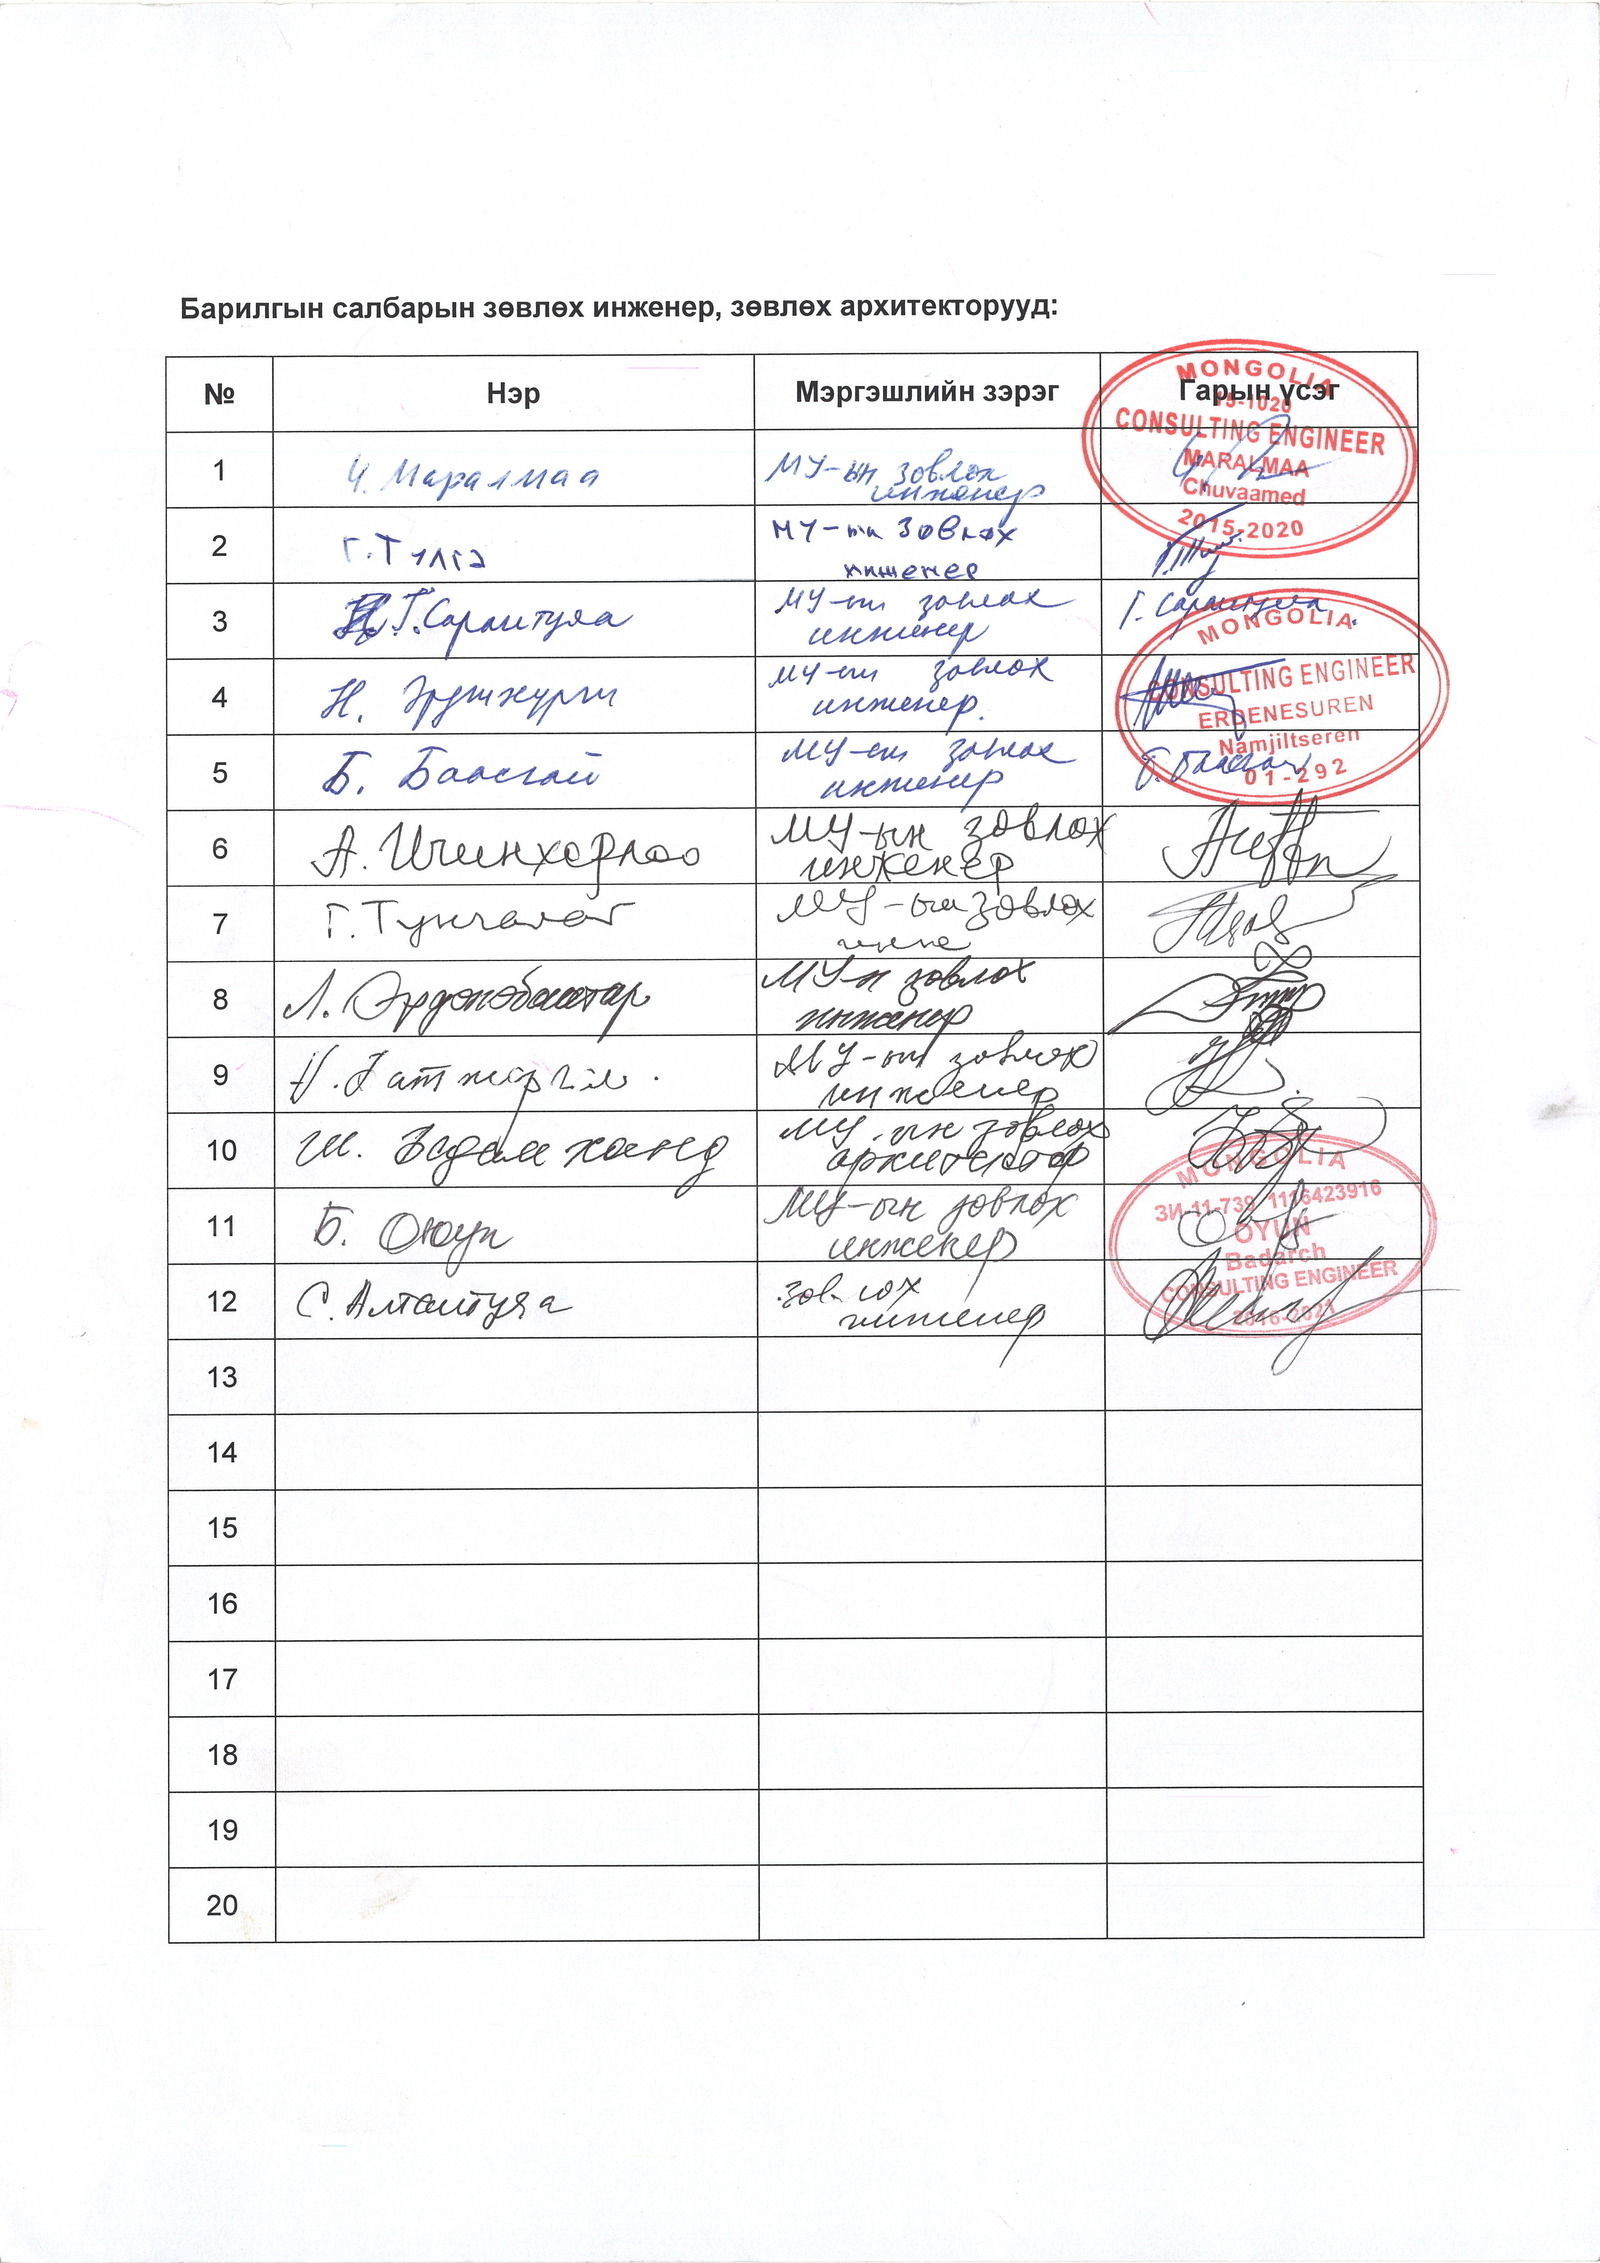 Барилгын салбарын зөвлөх инженер, зөвлөх архитекторууд:
№ Нэр Мэргэшлийн зэрэг Гарын үсэг
MONGOLIA
15-1020
CONSULTING ENGINEER
MARALMAA
Chuvaamed
2015-2020
1 Ч. Маралмаа МУ-ын зөвлөх
инженер
2 Г. Тулга МУ-ын зөвлөх
инженер
3 Г. Сарантуяа МУ-ын зөвлөх Г. Сарантуяа
инженер
MONGOLIA
CONSULTING ENGINEER
ERDENESUREN
Namjiltseren
01-292
4 Н. МУ-ын зөвлөх
инженер.
5 Б. Баасгай МУ-ын зөвлөх
инженер
6 А. Ичинхорлоо МУ-ын зөвлөх
инженер
7 Г. Тунгалаг МУ-ын зөвлөх
8 Л. Эрдэнэбаатар МУ-н зөвлөх
инженер
9 МУ-ын зөвлөх
инженер
10 Ш. МУ-ын зөвлөх
архитектор
MONGOLIA
ЗИ-11-739 1116423916
OYUN
Badarch
CONSULTING ENGINEER
2016-2021
11 Б. Оюун МУ-ын зөвлөх
инженер
12 С. Алтантуяа зөвлөх
инженер
13
14
15
16
17
18
19
20